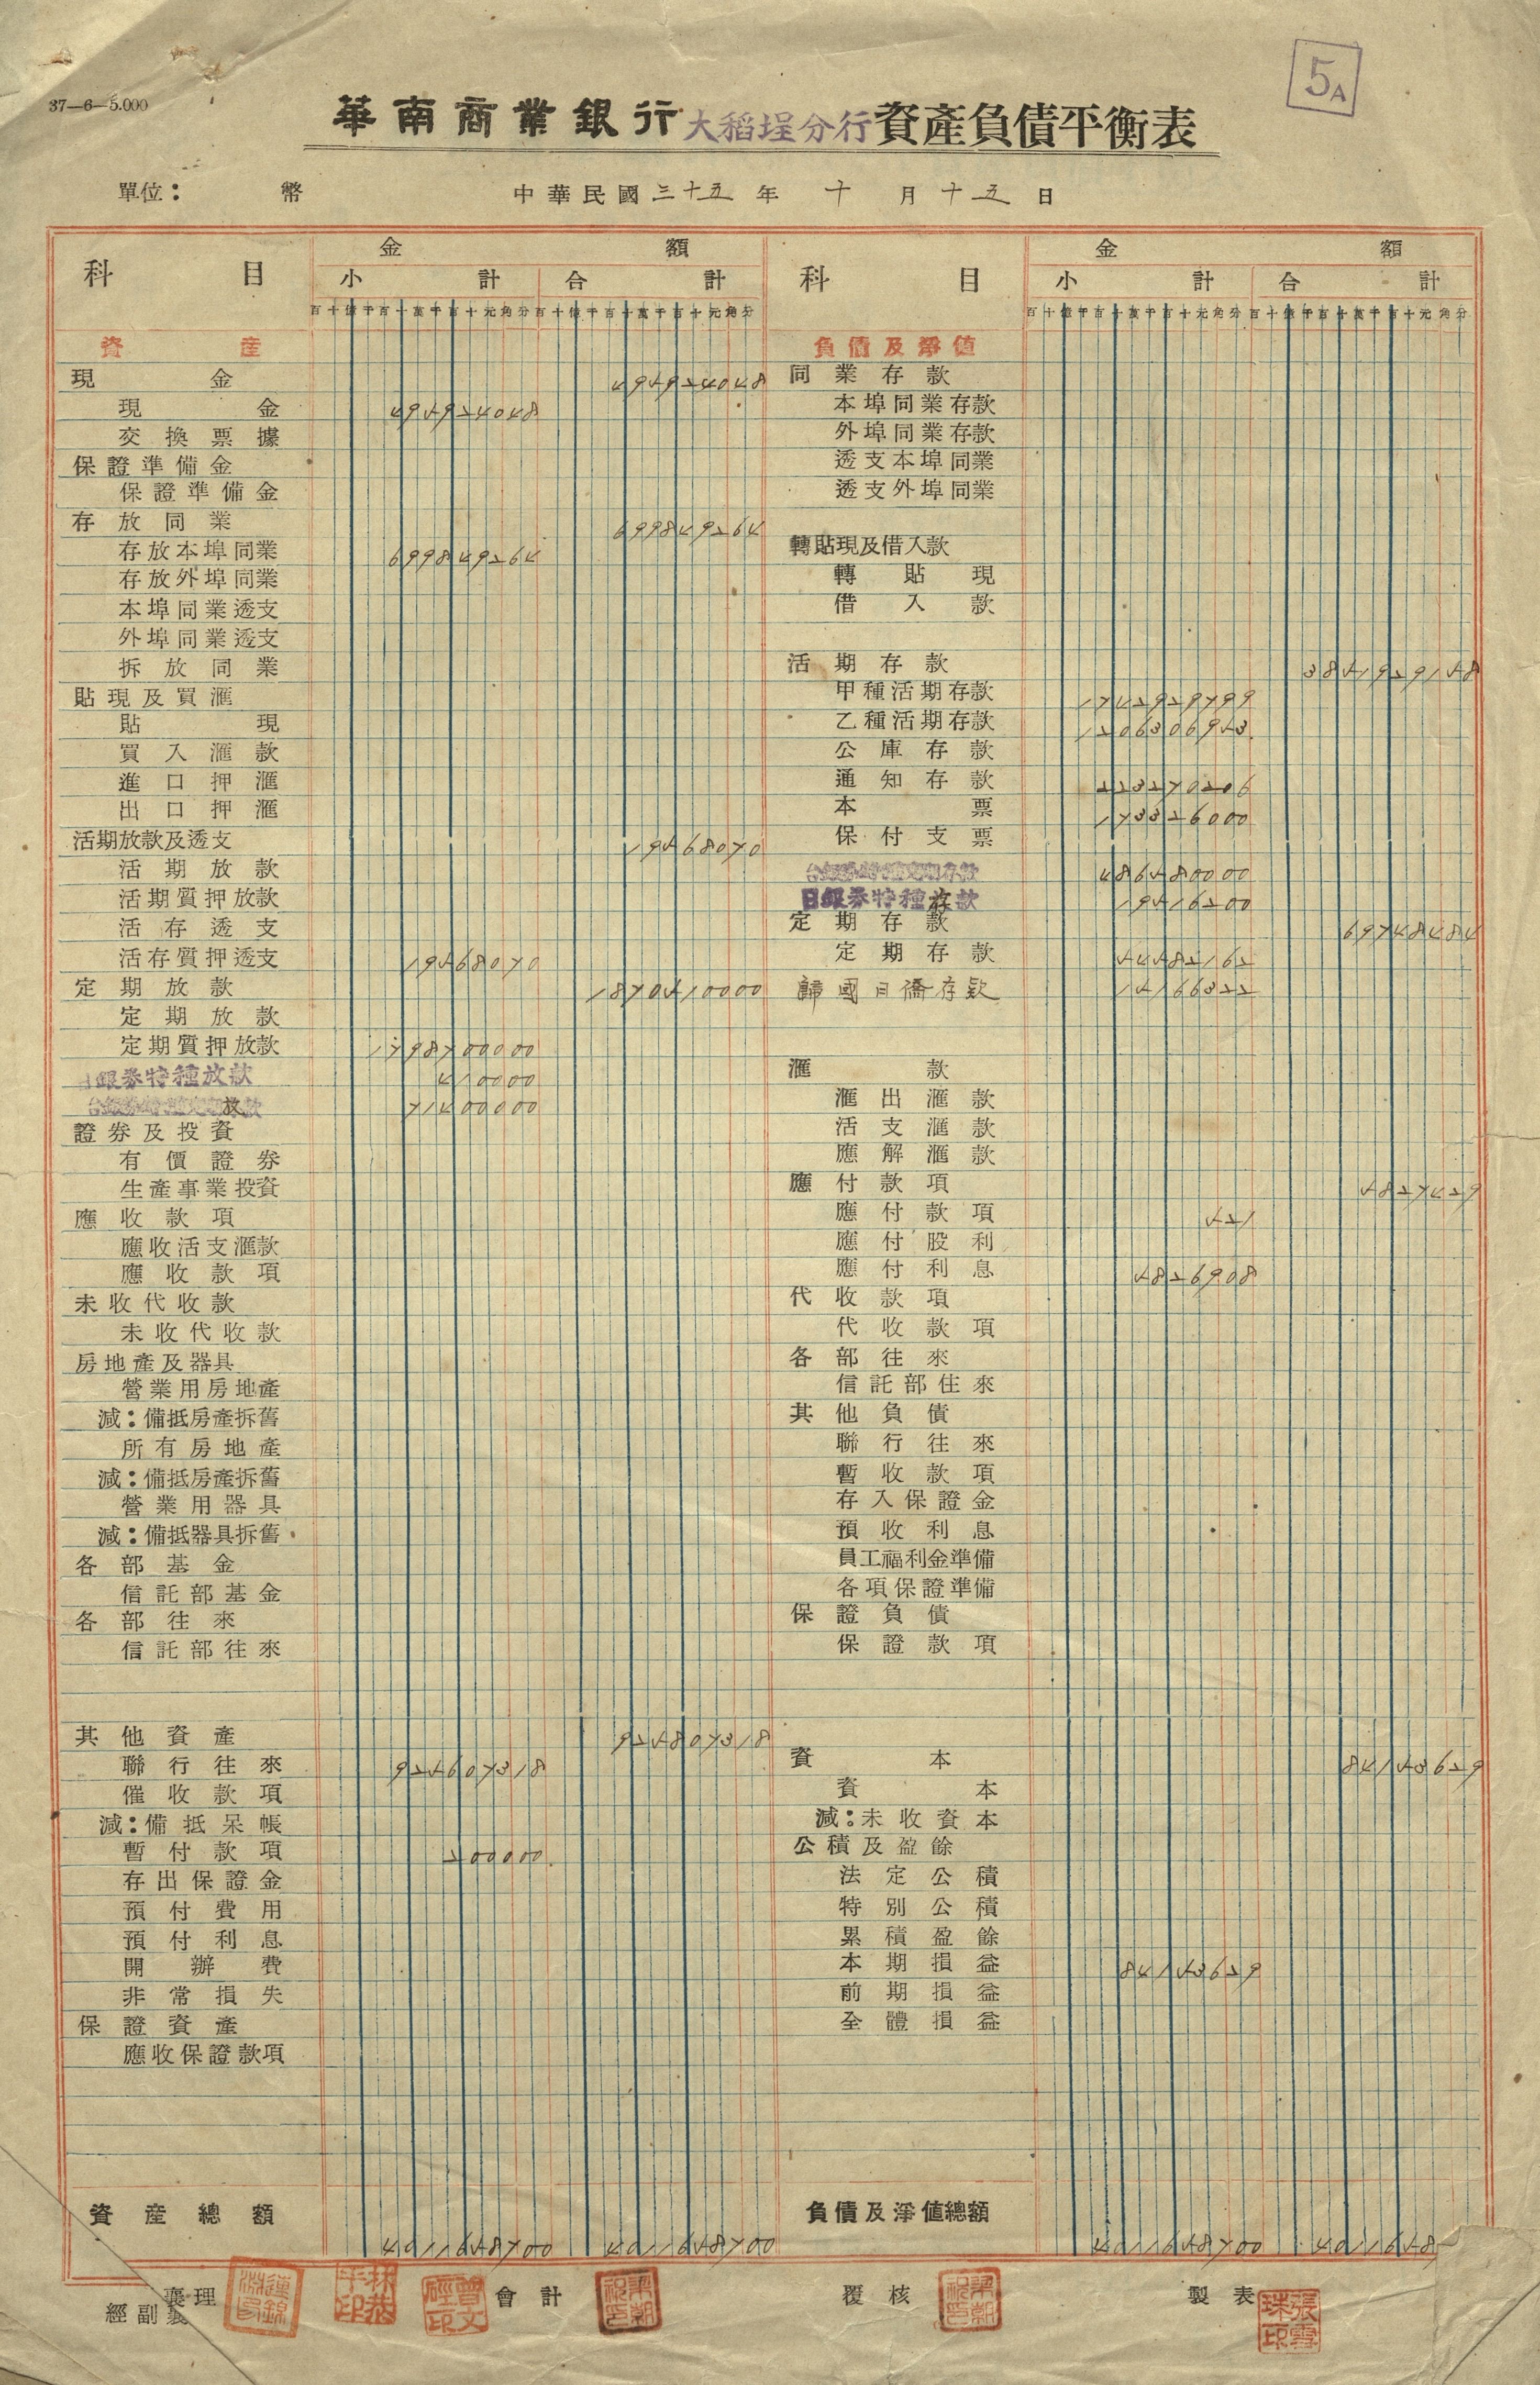 37—6—5.000
5A
華南商業銀行大稻埕分行資產負債平衡表
單位： 幣 中華民國三十五年 十 月 十五 日
科 目 金 額
小 計 合 計
百十億千百十萬千百十元角分 百十億千百十萬千百十元角分
資 產
現 金 495924048
現 金 495924048
交換票據
保證準備金
保證準備金
存放同業 699849264
存放本埠同業 699849264
存放外埠同業
本埠同業透支
外埠同業透支
拆放同業
貼現及買滙
貼 現
買入滙款
進口押滙
出口押滙
活期放款及透支 19568070
活期放款
活期質押放款
活存透支
活存質押透支 19568070
定期放款 1870510000
定期放款
定期質押放款 1798700000
日銀券特種放款 410000
台銀券特種定期放款 71400000
證券及投資
有價證券
生產事業投資
應收款項
應收活支滙款
應收款項
未收代收款
未收代收款
房地產及器具
營業用房地產
減：備抵房產拆舊
所有房地產
減：備抵房產拆舊
營業用器具
減：備抵器具拆舊
各部基金
信託部基金
各部往來
信託部往來
其他資產 925807318
聯行往來 925607318
催收款項
減：備抵呆帳
暫付款項 200000
存出保證金
預付費用
預付利息
開辦費
非常損失
保證資產
應收保證款項
資產總額 4011658700 4011658700
科 目 金 額
小 計 合 計
百十億千百十萬千百十元角分 百十億千百十萬千百十元角分
負債及淨值
同業存款
本埠同業存款
外埠同業存款
透支本埠同業
透支外埠同業
轉貼現及借入款
轉貼現
借入款
活期存款 3851929158
甲種活期存款 1742929799
乙種活期存款 1206306953
公庫存款
通知存款 223270206
本 票 173326000
保付支票
台銀券特種定期存款 486580000
日銀券特種存款 19516200
定期存款 69748484
定期存款 54582162
歸國日僑存款 15166322
滙 款
滙出滙款
活支滙款
應解滙款
應付款項 5827429
應付款項 521
應付股利
應付利息 5826908
代收款項
代收款項
各部往來
信託部往來
其他負債
聯行往來
暫收款項
存入保證金
預收利息
員工福利金準備
各項保證準備
保證負債
保證款項
資 本 84153629
資 本
減：未收資本
公積及盈餘
法定公積
特別公積
累積盈餘
本期損益 84153629
前期損益
全體損益
負債及淨值總額 4011658700 4011658
襄理
經副襄 會計 覆核 製表